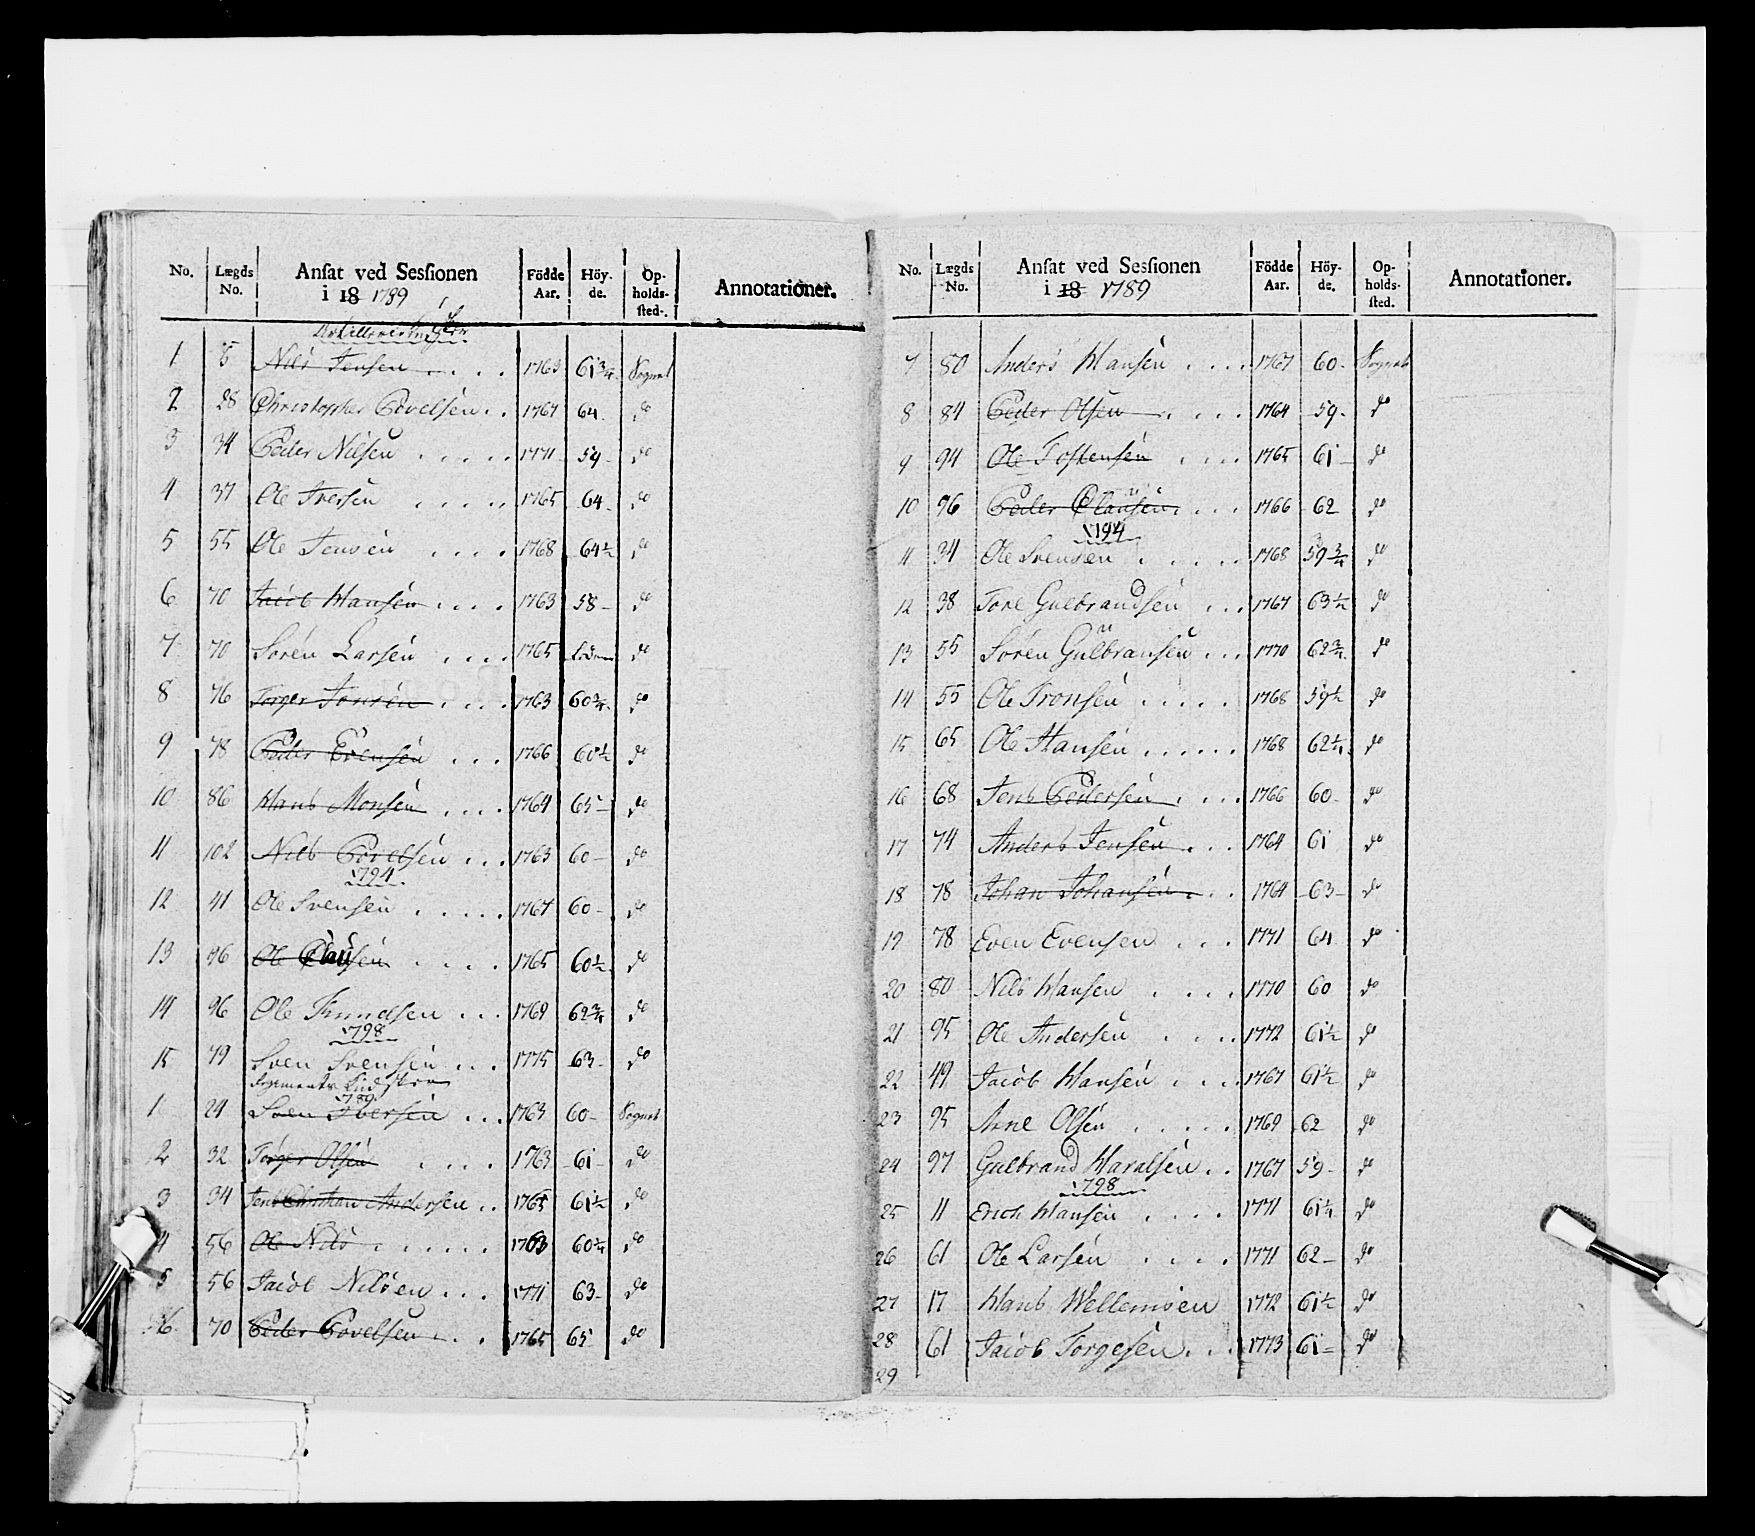 No. Lægds No. Ansat ved Sessionen i 18 1789 Födde Aar. Höy- de. Op- holds- sted. Annotationer.
1 5 Nils Jensen . . . . 1763 61 3/4 Sognet
2 28 Christopher Povelsen . . 1767 64 do
3 34 Peder Nilsen . . . . . 1771 59 do
4 37 Ole Iversen . . . . 1765 64 do
5 55 Ole Jensen . . . . 1768 64 1/2 do
6 70 Jacob Hansen . . . . 1763 58 do
7 70 Sören Larsen . . . . 1765 do
8 76 Torger Jonsen . . . . 1763 60 3/4 do
9 78 Peder Evensen . . . 1766 60 1/2 do
10 86 Hans Monsen . . . . 1764 65 do
11 102 Nils Povelsen . . . 1763 60 do
1794
12 41 Ole Svensen . . . . . 1767 60 do
13 96 Ole Clausen . . . . 1765 60 1/2 do
14 96 Ole Knudsen . . . 1769 62 3/4 do
1798
15 79 Sven Svensen . . . 1775 63 do
1789
1 24 Sven Iversen . . . 1763 60 Sognet
2 32 Torger Olsen . . . . 1763 61 do
3 34 Jens Christian Andersen . . 1765 61 1/2 do
4 56 Ole Nils . . . . . . 1763 60 3/4 do
5 56 Jacob Nilsen . . . 1771 63 do
6 70 Peder Povelsen . . . 1765 65 do
No. Lægds No. Ansat ved Sessionen i 18 1789 Födde Aar. Höy- de. Op- holds- sted. Annotationer.
7 80 Anders Hansen . . . . 1767 60 Sognet
8 84 Peder Olsen . . . . 1764 59 do
9 94 Ole Tostensen . . . 1765 61 do
10 96 Peder Clausen . . . 1766 62 do
1794
11 34 Ole Svensen . . . . . 1768 59 3/4 do
12 38 Tore Gulbrandsen . . . 1767 63 1/2 do
13 55 Sören Gulbransen . . . 1770 62 3/4 do
14 55 Ole Tronsen . . . . . 1768 59 1/2 do
15 65 Ole Hansen . . . . . . 1768 62 1/4 do
16 68 Jens Pedersen . . . . 1766 60 do
17 74 Anders Jensen . . . 1764 61 do
18 78 Johan Johansen . . . 1764 63 do
19 78 Even Evensen . . . 1771 64 do
20 80 Nils Hansen . . . . 1770 60 do
21 95 Ole Andersen . . . . 1772 61 1/2 do
22 49 Jacob Hansen . . . . 1767 61 1/2 do
23 95 Arne Olsen . . . . . 1769 62 do
24 97 Gulbrand Haralsen . . 1767 59 do
1798
25 11 Erich Hansen . . . . 1771 61 1/4 do
26 61 Ole Larsen . . . . 1771 62 do
27 17 Hans Wellemsen 1772 61 1/2 do
28 61 Jacob Torgesen . . . 1773 61 do
29